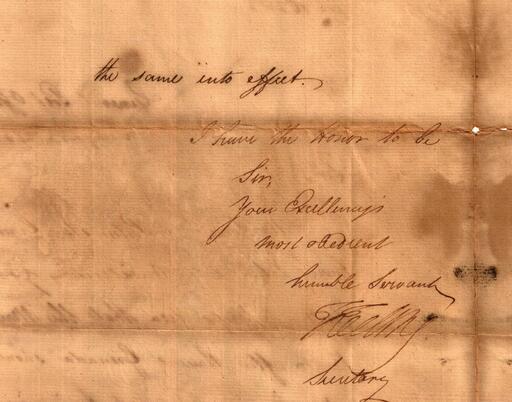 the same into effect.
I have the Honor to be
Sir,
Your Excellency's
most obedient
humble Servant
Secretary